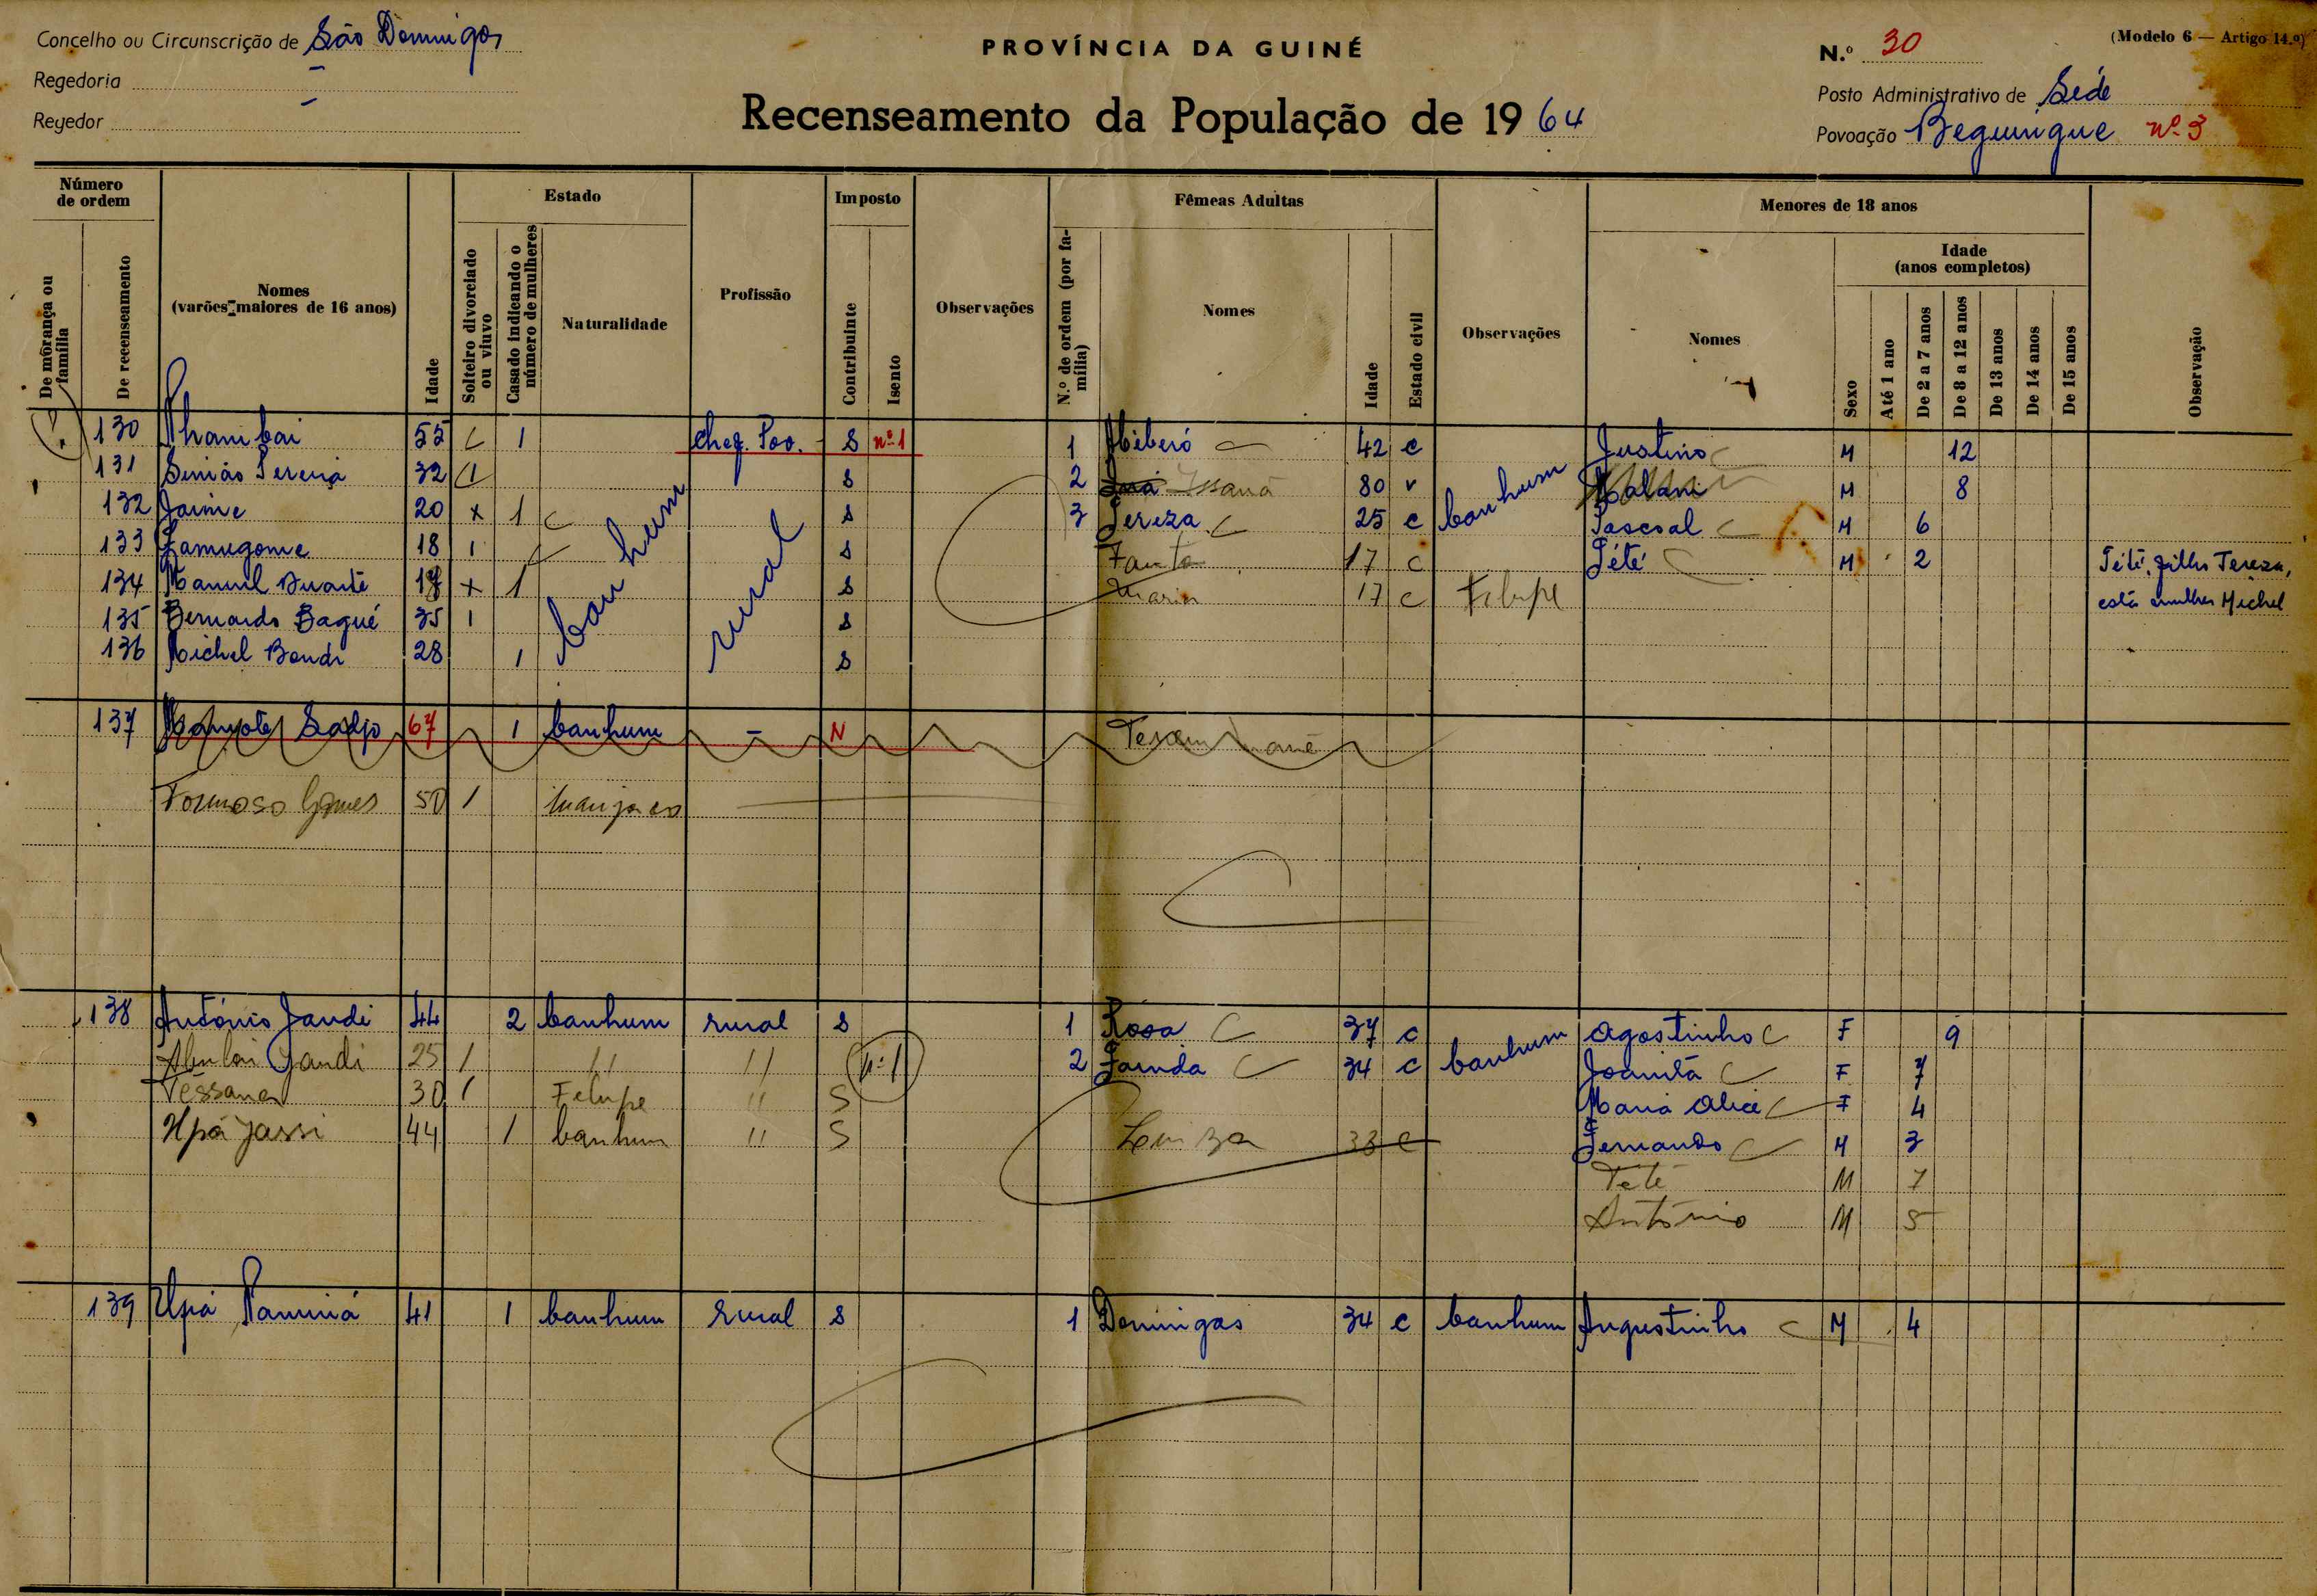 Concelho ou Circunscrição de São Domingos
PROVÍNCIA DA GUINÉ
N.º 30
(Modelo 6 — Artigo 14.º)
Regedoria –
Posto Administrativo de Séde
Regedor –
Recenseamento da População de 1964
Povoação Beguingue nº 3
Número de ordem
Estado
Imposto
Fêmeas Adultas
Menores de 18 anos
De môrança ou família
De recenseamento
Nomes (varões maiores de 16 anos)
Idade
Solteiro divorciado ou viuvo
Casado indicando o número de mulheres
Naturalidade
Profissão
Contribuinte
Isento
Observações
N.º de ordem (por família)
Nomes
Idade
Estado civil
Observações
Nomes
Sexo
Idade (anos completos)
Até 1 ano
De 2 a 7 anos
De 8 a 12 anos
De 13 anos
De 14 anos
De 15 anos
Observação
130 55 1 chef. Pov. S nº 1 1 42 c Justino M 12
131 32 1 S 2 80 v M 8
132 Jaime 20 x 1 S 3 Tereza 25 c banhum Pascoal M 6
133 18 1 banhum rural S 17 c Tété M 2 Tété, filho Tereza,
134 Manuel Duarte x 1 S Maria 17 c Felupe está mulher Michel
135 Bernardo Bagué 35 1 S
136 Michel 28 1 S
137 67 1 banhum – N
Formoso Gomes 50 1 manjaco
138 António Jandi 44 2 banhum rural S 1 Rosa 37 c banhum Agostinho F 9
Jandi 25 1 " " nº 1 2 34 c Joanitã F 7
30 1 Felupe " S Maria Alice F 4
Upá Jassi 44 1 banhum " S 33 c Fernando M 3
Tété M 7
António M 5
139 Upá 41 1 banhum rural S 1 Domingas 34 c banhum Augustinho M 4